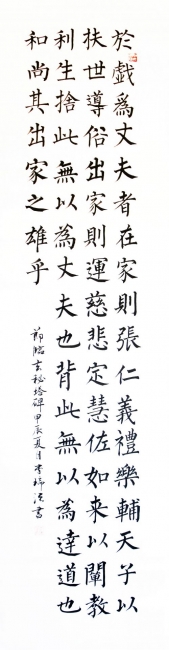 於戲為丈夫者在家則張仁義禮樂輔天子以
扶世導俗出家則運慈悲定慧佐如來以闡教
利生捨此無以為丈夫也背此無以為達道也
和尚其出家之雄乎
節臨玄秘塔碑甲辰夏月李瑞法書